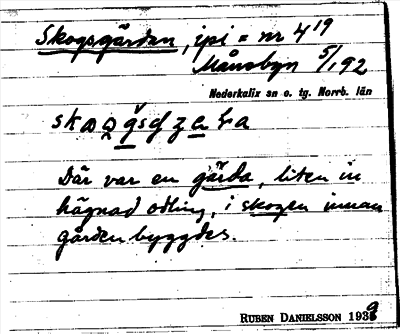 Skogsgärdan, ipi = nr 4¹⁹
Månsbyn 5/192
Nederkalix sn o. tg. Norrb. län
Där var en gärda, liten in
hägnad odling, i skogen innan
gården byggdes.
RUBEN DANIELSSON 1939